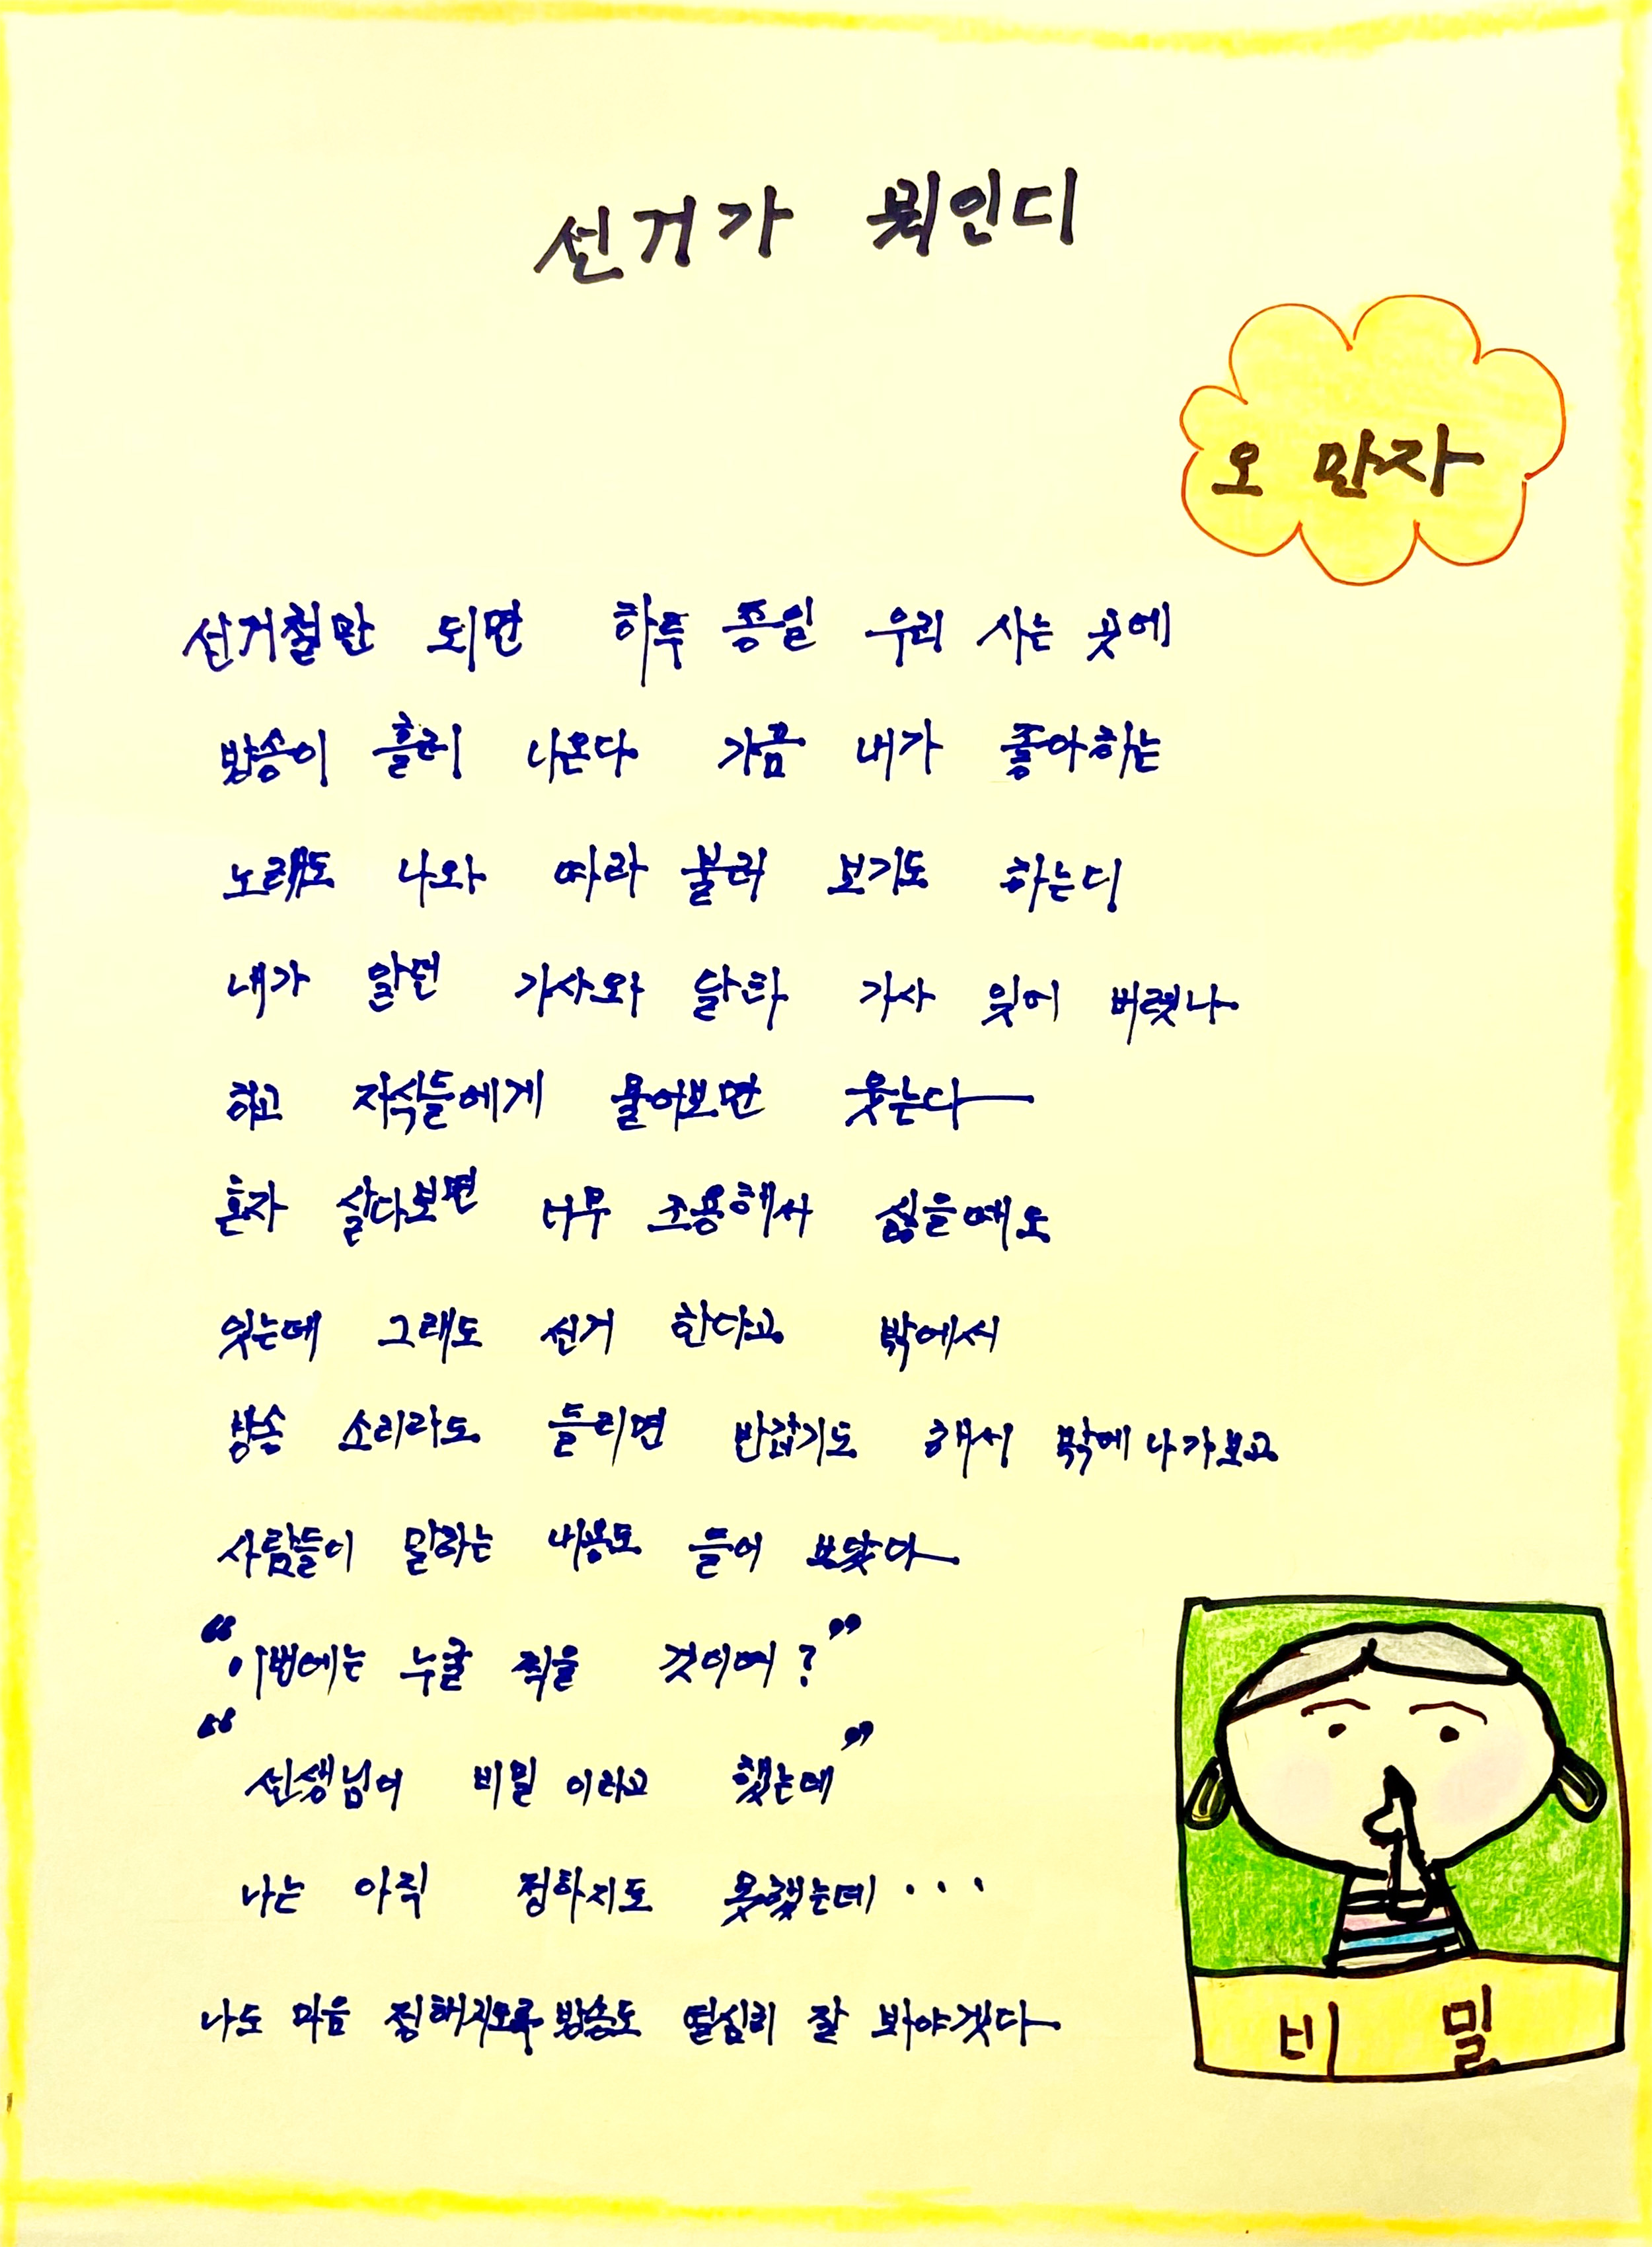 선거가 뭐인디
오 만자
선거철만 되면 하루 종일 우리 사는 곳에
방송이 흘러 나온다 가끔 내가 좋아하는
노래도 나와 따라 불러 보기도 하는디
내가 알던 가사와 달라 가사 잊어 버렷나
하고 자식들에게 물어보면 웃는다
혼자 살다보면 너무 조용해서 싫을때도
잇는데 그래도 선거 한다고 밖에서
방송 소리라도 들리면 반갑기도 해서 밖에 나가보고
사람들이 말하는 내용도 들어 보았다
"이번에는 누굴 찍을 것이여?"
"선생님이 비밀 이라고 했는데"
나는 아직 정하지도 못했는데 ...
나도 마음 정해지도록 방송도 열심히 잘 봐야겟다
비 밀